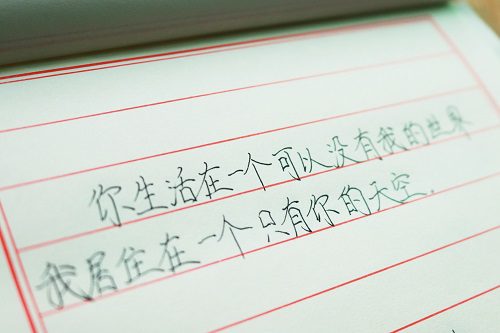 你生活在一个可以没有我的世界
我居住在一个只有你的天空.